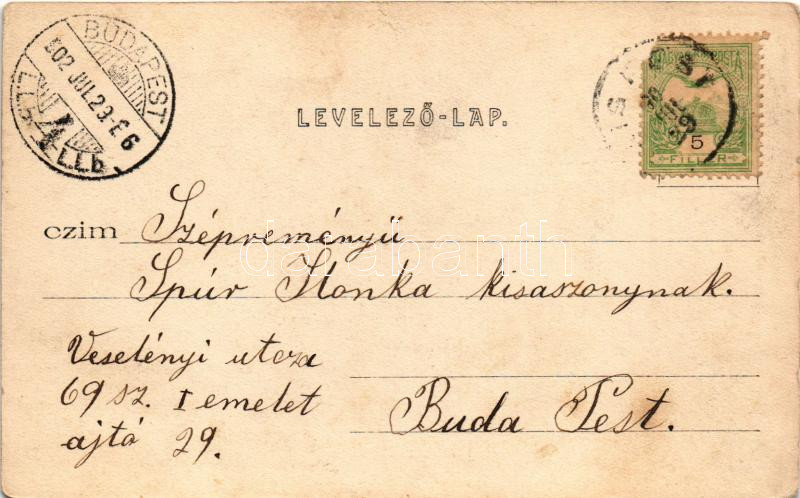 BUDAPEST
902 JUL 29 - E 6
LEVELEZŐ-LAP.
5
FILLÉR
czim Szépreményü
Spúr Ilonka kisaszonynak.
Veselényi utcza
69 sz. I emelet
ajtó 29.
Buda Pest.
darabanth